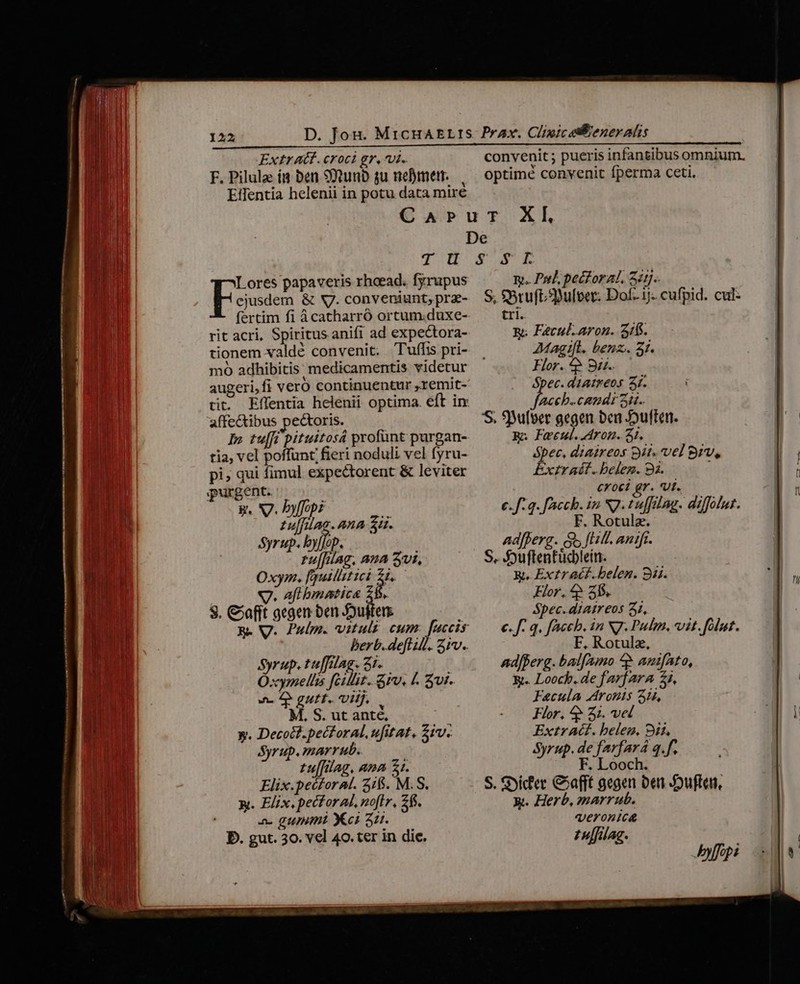 122 D. Joh. Michaelis Prax. Clinicæ Generalis
Extract. croci gr. vi.
F. Pilulæ in den Mund zu nehmen.
Essentia helenii in potu data mire
convenit; pueris infantibus omnium
optime convenit sperma ceti.
Caput XI.
De
TUSSI.
Flores papaveris rhœad. syrupus
ejusdem & 🜄. conveniunt, præ-
sertim si à catharrô ortum duxe-
rit acri. Spiritus anisi ad expectora-
tionem valdè convenit. Tussis pri-
mò adhibitis medicamentis videtur
augeri, si verò continuentur, remit-
tit. Essentia helenii optima est in
affectibus pectoris.
In tussi pituitosâ prosunt purgan-
tia, vel possunt fieri noduli vel syru-
pi, qui simul expectorent & leviter
purgent.
℞. 🜄. hyssopi
tussilag. ana ℥ii.
Syrup. hyssop.
tussilag. ana ʒvi,
Oxym. squillitici ℥i.
🜄. asthmatica ℥ß.
S. Safft gegen den Husten
℞. 🜄. Pulm. vituli cum succis
herb. destill. ℥iv.
Syrup. tussilag. ℥i.
Oxymellis scillit. ʒiv. l. ʒvi.
🜍 gutt. viij.
M. S. ut ante,
℞. Decoct. pectoral. usitat. ℥iv.
Syrup. marrub.
tussilag. ana ℥i.
Elix. pectoral. ʒiß. M. S.
℞. Elix. pectoral. nostr. ℥ß.
gummi Xci ʒii.
D. gut. 30. vel 40. ter in die.
℞. Pul. pectoral. ℥iij.
S. Brust-Pulver. Dos. ij. cuspid. cul-
tri.
℞. Fæcul. aron. ʒiß.
Magist. benz. ʒi.
Flor. 🜍 ℈ii.
Spec. diaireos ʒi.
sacch. candi ʒii.
S. Pulver gegen den Husten.
℞. Fæcul. Aron. ʒi,
Spec. diaireos ℈ii. vel ℈iv,
Extract. helen. ℈i.
croci gr. vi.
c. s. q. sacch. in 🜄. tussilag. dissolut.
F. Rotulæ.
adsperg. still. anist.
S. Hustenküchlein.
℞. Extract. helen. ℈ii.
Flor. 🜍 ʒß,
Spec. diaireos ʒi,
c. s. q. sacch. in 🜄. Pulm. vit. solut.
F. Rotulæ,
adsperg. balsamo 🜍 anisato,
℞. Looch. de farfara ℥i,
Fæcula Aronis ʒii,
Flor. 🜍 ʒi. vel
Extract. helen. ℈ii,
Syrup. de farfarâ q. s.
F. Looch.
S. Dicker Safft gegen den Husten,
℞. Herb. marrub.
veronicæ
tussilag.
hyssopi